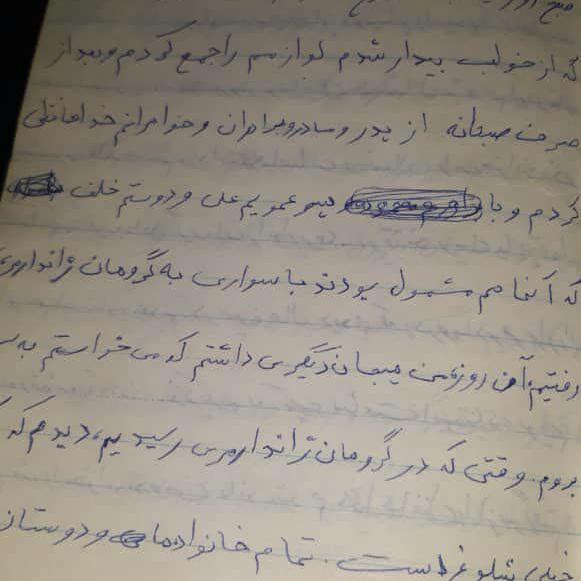 صبح
که از خواب بیدار شدم لوازمم را جمع کردم و بعد از
صرف صبحانه از پدر و مادر و برادران و خواهرانم خداحافظی
کردم و با پسر عمویم علی و دوستم خلف
که آنها هم مشمول بودند با سواری به گروهان ژاندارمری
رفتیم، آن روز، من هیجان دیگری داشتم که می خواستم به
بروم وقتی که در گروهان ژاندارمری رسیدیم، دیدم که
خیلی شلوغ است. تمام خانواده ها و دوستان